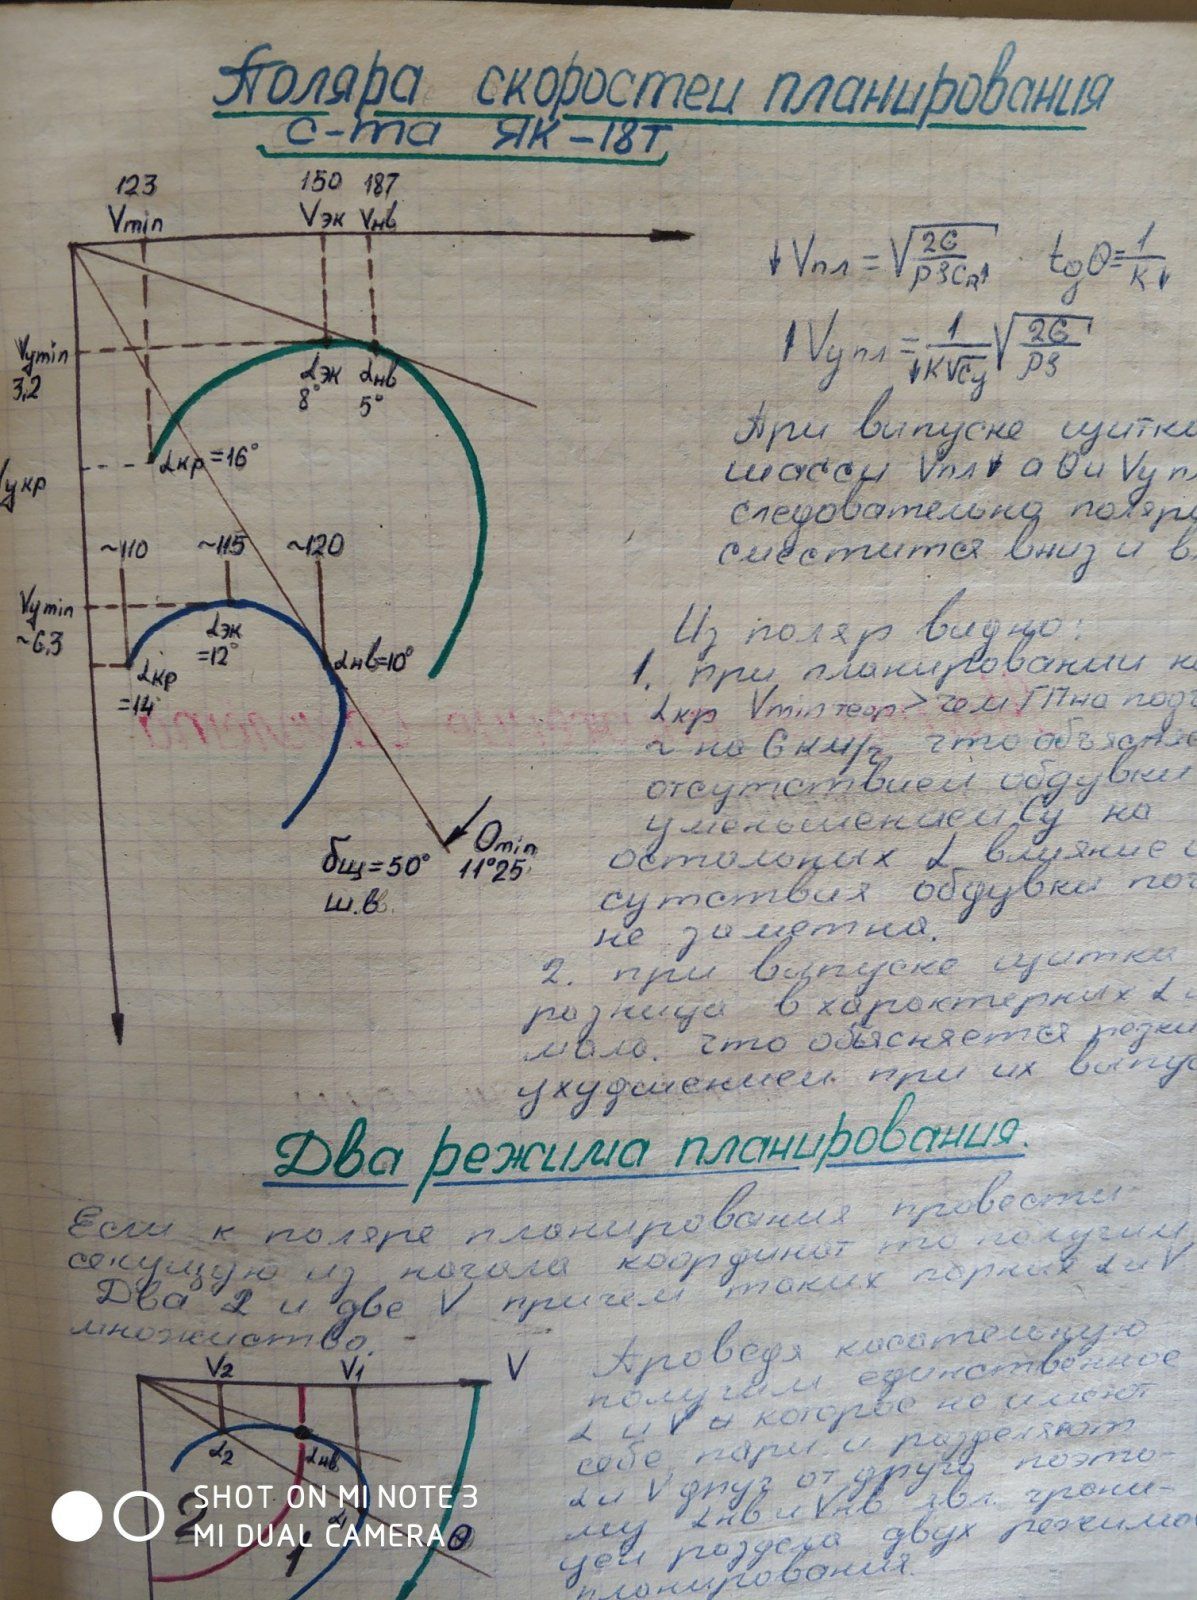 Поляра скоростей планирования
с-та ЯК-18Т
123 150 187
Vmin Vэк Vнв
Vymin
3,2
αэк αнв
8° 5°
αкр=16°
Vукр
~110 ~115 ~120
Vymin
~6,3
αэк
=12°
αкр
=14°
αнв=10°
δщ=50°
ш.в.
Θmin
11°25'
↓Vпл=√2G/ρSCR↑ tgΘ=1/K↓
↑Vy пл=1/↓K√Cy √2G/ρS
При випуске щитка
шасси Vпл↓ а Θ и Vy пл
следовательно поляра
сместится вниз и в
Из поляр видно:
1. при планировании на
αкр Vmin теор> чем ГП на
на 6 км/ч что объясняе
отсутствием обдувки
уменьшением Cy на
остальных α влияние о
сутствия обдувки поч
не заметна.
2. при выпуске щитка
разница в характерных α
мала. что объясняется резки
ухудшением при их выпус
Два режима планирования.
Если к поляре планирования провести
секущую из начала координат то получим
Два α и две V причем таких парных α и V
множиство.
Проведя касательную
получим единственное
α и V которое не имеют
себе пари и разделяют
α и V друг от друга поэто-
му αнв и Vнв явл. грани-
цей раздела двух режимов
планирования.
V2 V1 V
α2 αнв
α1
2
1
Θ
SHOT ON MI NOTE 3
MI DUAL CAMERA